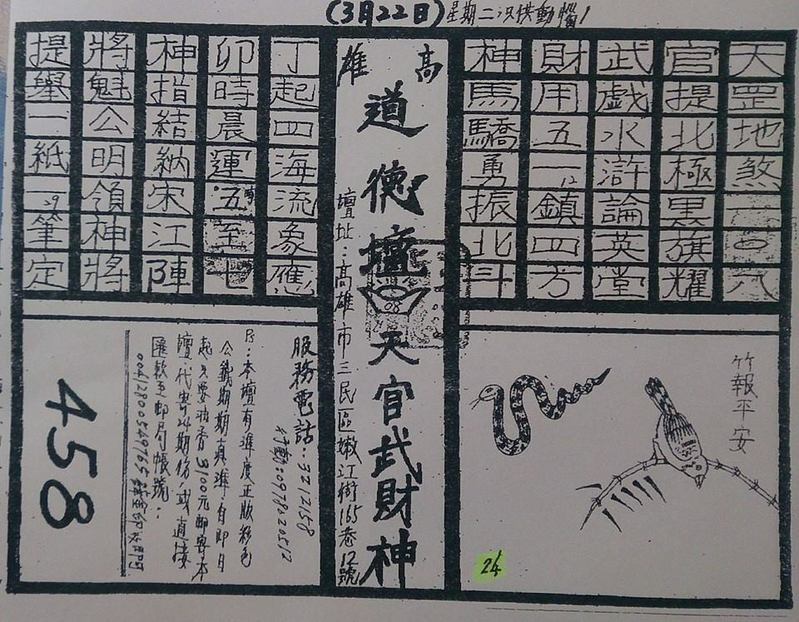 (3月22日) 星期二只供動腦!
天罡地煞四八
官提北極黑旗耀
武戲水滸論英堂
財用五一12鎮四方
神馬驕勇振北斗
高雄
道德壇 天官武財神
壇址:高雄市三民區嫩江街165巷12號
丁起四海流象應
卯時晨運五至七
神指結納宋江陣
將魁公明領神將
提舉一紙一29筆定
竹報平安
24
服務電話:3212158
行動:0978215512
本壇有準度正版彩色
公籤期期真準有即日
起只要油香3100元郵寄本
壇代寄24期份或直接
匯款至郵局帳號:
00412800549765
458